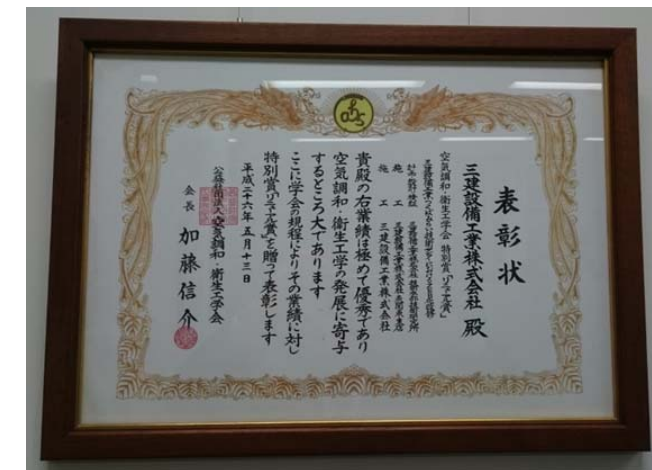 表彰状
三建設備工業株式会社 殿
空気調和・衛生工学会 特別賞「リニューアル賞」
施工 三建設備工業株式会社
貴殿の右業績は極めて優秀であり
空気調和・衛生工学の発展に寄与
するところ大であります
ここに学会の規程によりその業績に対し
特別賞「リニューアル賞」を贈って表彰します
平成二十六年五月十三日
公益社団法人 空気調和・衛生工学会
会長 加藤信介